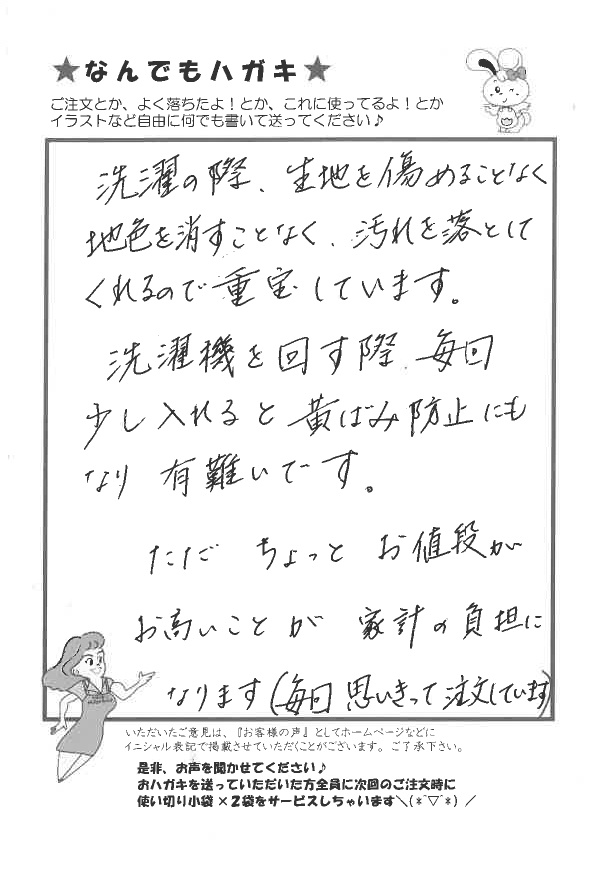 ★なんでもハガキ★
ご注文とか、よく落ちたよ！とか、これに使ってるよ！とか
イラストなど自由に何でも書いて送ってください♪
洗濯の際、生地を傷めることなく
地色を消すことなく、汚れを落として
くれるので重宝しています。
洗濯機を回す際、毎回
少し入れると黄ばみ防止にも
なり 有難いです。
ただ ちょっと お値段が
お高いことが 家計の負担に
なります(毎回思いきって注文しています)
いただいたご意見は、『お客様の声』としてホームページなどに
イニシャル表記で掲載させていただくことがございます。ご了承下さい。
是非、お声を聞かせてください♪
おハガキを送っていただいた方全員に次回のご注文時に
使い切り小袋×2袋をサービスしちゃいます＼(*ˆ▽ˆ*)／